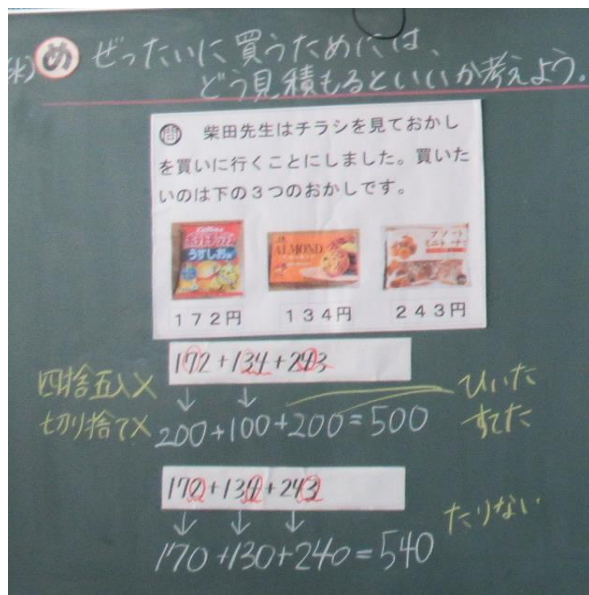 め ぜったいに買うためには、
どう見積もるといいか考えよう。
問 柴田先生はチラシを見ておかし
を買いに行くことにしました。買いた
いのは下の3つのおかしです。
Calbee
ポテトチップス
うすしお味
ALMOND
アソート
ミニドーナツ
172円 134円 243円
172+134+243
四捨五入×
切り捨て×
200+100+200=500
ひいた
すてた
172+134+243
170+130+240=540
たりない